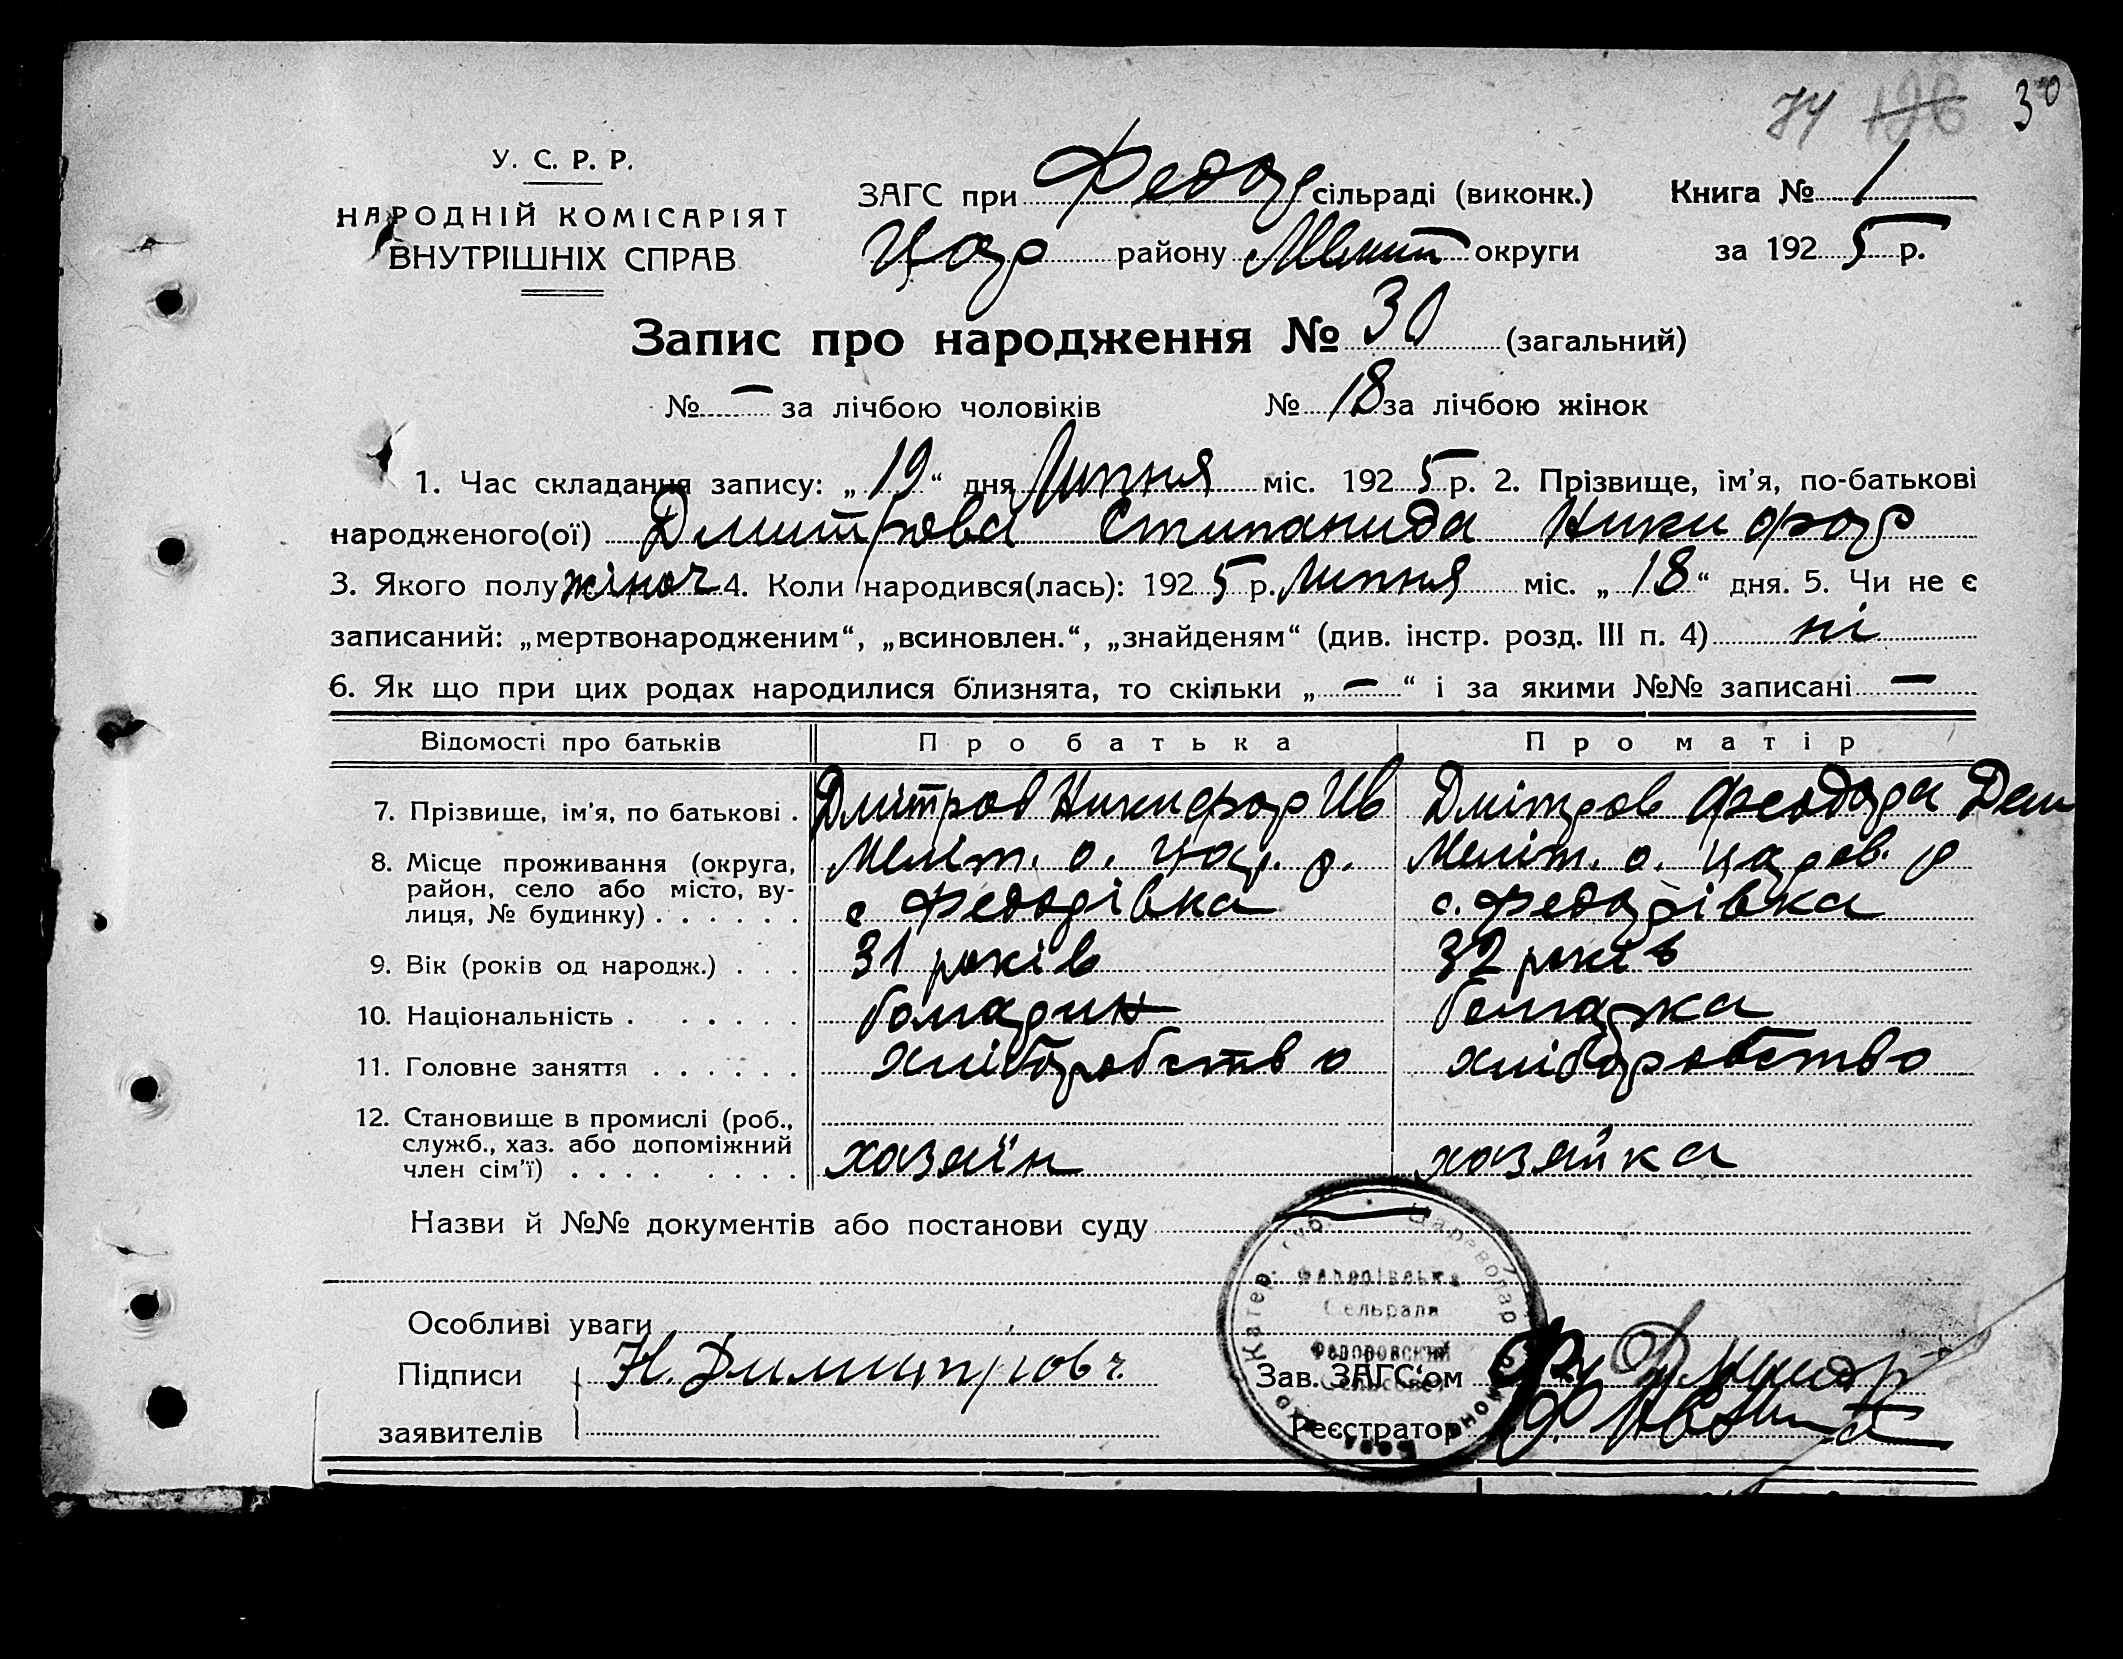 74 126 30
У. С. Р. Р.
НАРОДНІЙ КОМІСАРІЯТ
ВНУТРІШНІХ СПРАВ
ЗАГС при Федор сільраді (виконк.) Книга № 1
Цар району Меліт округи за 1925 р.
Запис про народження № 30 (загальний)
№ — за лічбою чоловіків № 18 за лічбою жінок
1. Час складання запису: „19“ дня Липня міс. 1925 р. 2. Прізвище, ім'я, по-батькові
народженого(ої) Дмитрова Стипанида Никифор
3. Якого полу жіноч 4. Коли народився(лась): 1925 р. Липня міс. „18“ дня. 5. Чи не є
записаний: „мертвонародженим“, „всиновлен.“, „знайденям“ (див. інстр. розд. III п. 4) ні
6. Як що при цих родах народилися близнята, то скільки „—“ і за якими №№ записані —
Відомості про батьків Про батька Про матір
7. Прізвище, ім'я, по батькові . Дмітров Никифор Ив Дмітров Феодора Дем
8. Місце проживання (округа, район, село або місто, вулиця, № будинку) . . . . . . Меліт. о. Цар. р. с Федорівка Меліт. о. Царев. р с. Федорівка
9. Вік (років од народж.) . . . 31 років 32 років
10. Національність . . . . . . болгарин болгарка
11. Головне заняття . . . . . . хліборобство хліборобство
12. Становище в промислі (роб., служб., хаз. або допоміжний член сім'ї) . . . . . . . . хазяїн хазяйка
Назви й №№ документів або постанови суду —
Катер. губ. Цареводар
Федорівська
Сельрада
Федоровский
Сельсовет
Особливі уваги
Підписи Н. Димитровъ Зав. ЗАГС'ом
заявителів Реєстратор